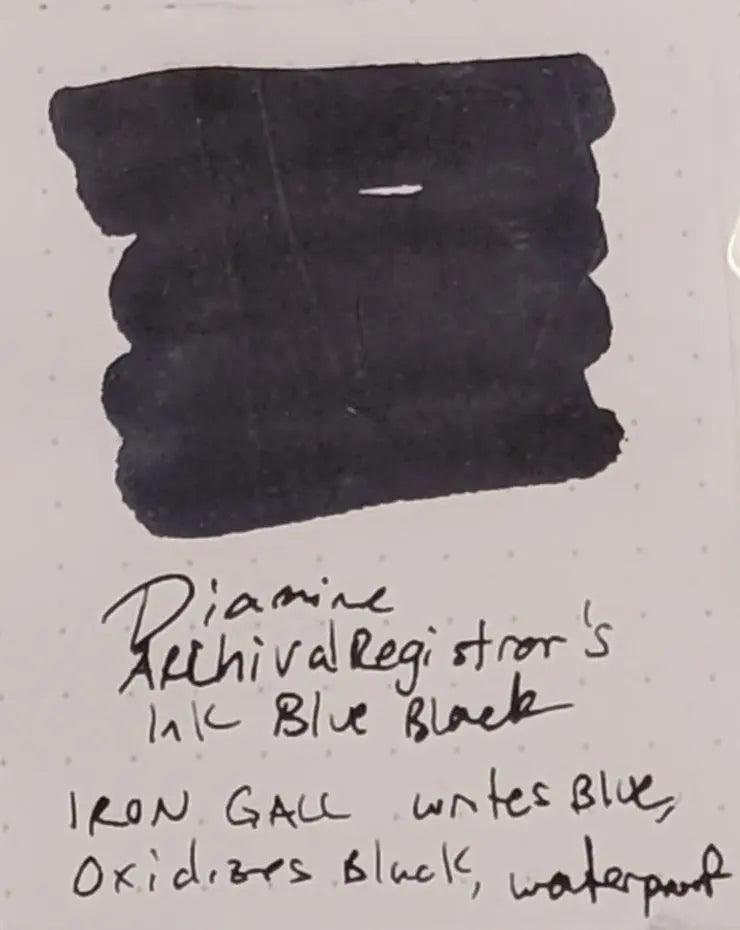 Diamine
Archival Registrar's
Ink Blue Black
IRON GALL writes Blue,
Oxidizes Black, waterproof